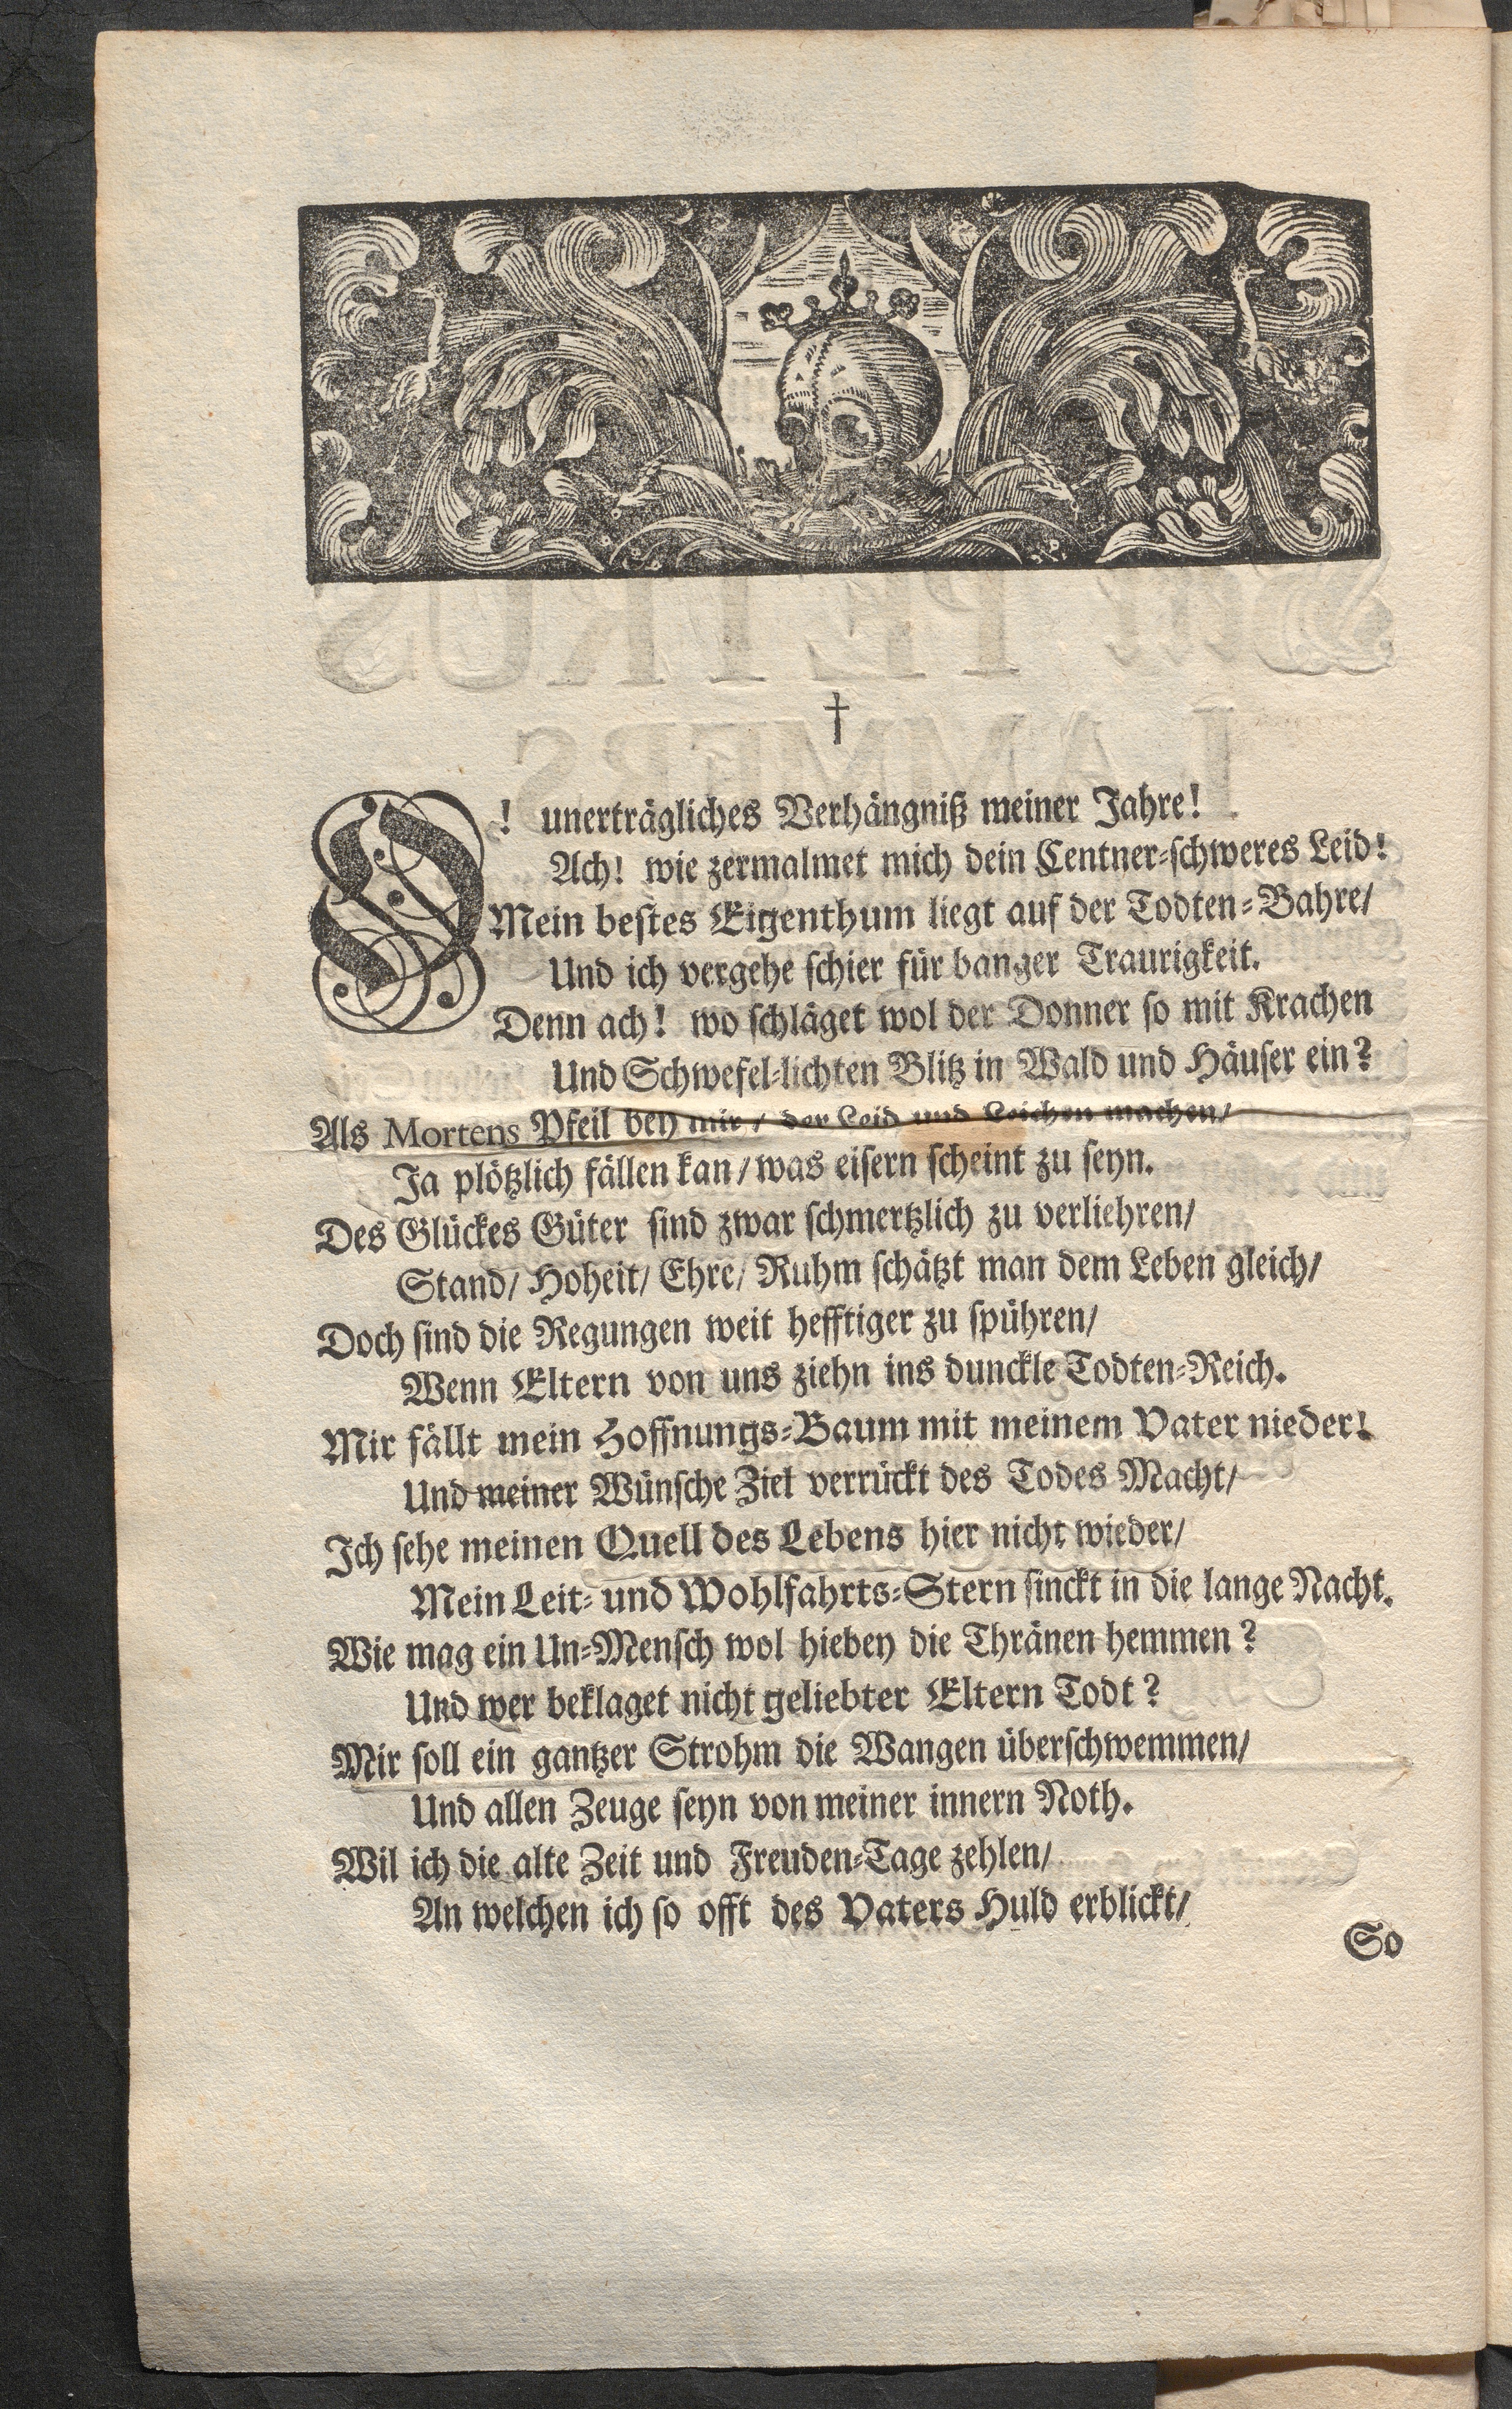 †
O! unerträgliches Verhängniß meiner Jahre!
Ach! wie zermalmet mich dein Centner-schweres Leid!
Mein bestes Eigenthum liegt auf der Todten-Bahre/
Und ich vergehe schier für banger Traurigkeit.
Denn ach! wo schläget wol der Donner so mit Krachen
Und Schwefel-lichten Blitz in Wald und Häuser ein?
Als Mortens Pfeil bey mir/ der Leid und Leichen machen/
Ja plötzlich fällen kan/ was eisern scheint zu seyn.
Des Glückes Güter sind zwar schmertzlich zu verliehren/
Stand/ Hoheit/ Ehre/ Ruhm schätzt man dem Leben gleich/
Doch sind die Regungen weit hefftiger zu spühren/
Wenn Eltern von uns ziehn ins dunckle Todten-Reich.
Mir fällt mein Hoffnungs-Baum mit meinem Vater nieder!
Und meiner Wünsche Ziel verrückt des Todes Macht/
Ich sehe meinen Quell des Lebens hier nicht wieder/
Mein Leit- und Wohlfahrts-Stern sinckt in die lange Nacht.
Wie mag ein Un-Mensch wol hiebey die Thränen hemmen?
Und wer beklaget nicht geliebter Eltern Todt?
Mir soll ein gantzer Strohm die Wangen überschwemmen/
Und allen Zeuge seyn von meiner innern Noth.
Wil ich die alte Zeit und Freuden-Tage zehlen/
An welchen ich so offt des Vaters Huld erblickt/
So